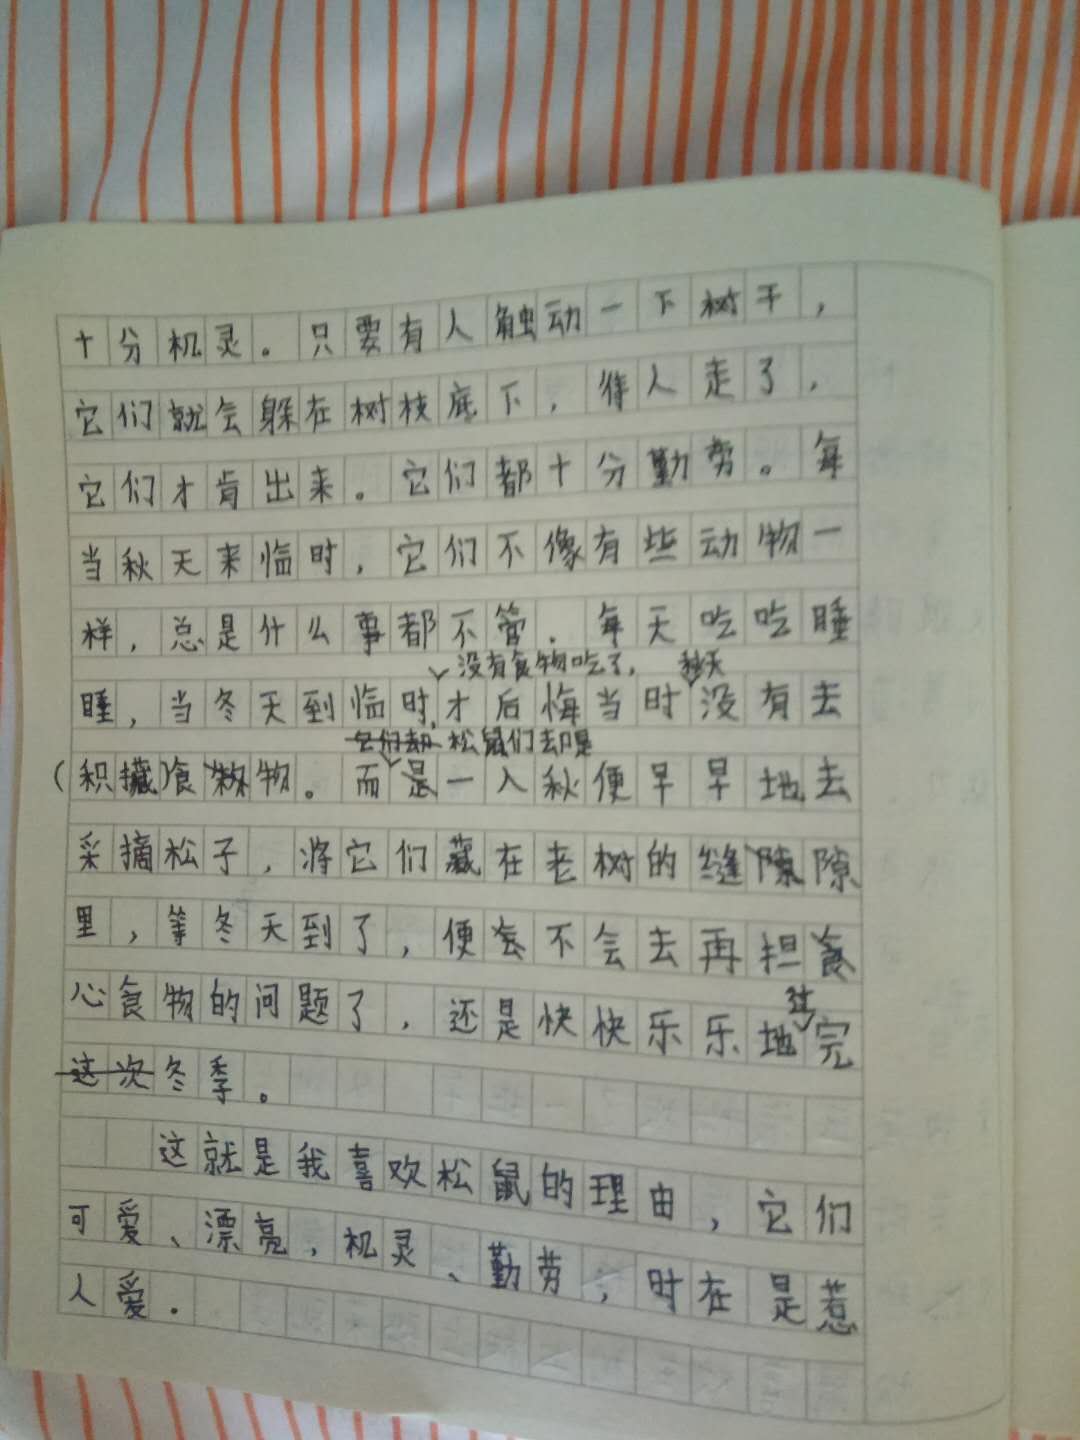 十分机灵。只要有人触动一下树干，
它们就会躲在树枝底下，待人走了，
它们才肯出来。它们都十分勤劳。每
当秋天来临时，它们不像有些动物一
样，总是什么事都不管．每天吃吃睡
没有食物吃了，秋天
睡，当冬天到临时，才后悔当时没有去
它们却 松鼠们却是
（积攒）食物物。而是一入秋便早早地去
采摘松子，将它们藏在老树的缝隙隙
里，等冬天到了，便会不会去再担食
心食物的问题了，还是快快乐乐地完
过
这次冬季。
这就是我喜欢松鼠的理由，它们
可爱、漂亮，机灵、勤劳，时在是惹
人爱．